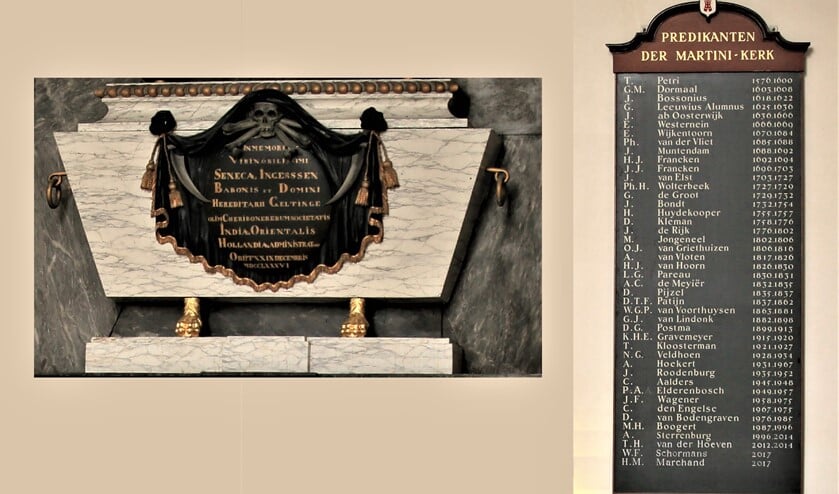 INMEMORI
VIRINOBILISSIMI
SENECA, INGERSSEN
BARONIS ET DOMINI
HEREDITARII GELTINGE
OLIM CHERIBONE RERUM SOCIETATIS
INDIA, ORIENTALIS
HOLLANDIA, ADMINISTRAT
OBIIT XXIX DECEMBRIS
MDCCLXXXVI
PREDIKANTEN
DER MARTINI-KERK
T. Petri 1576.1600
G.M. Dormaal 1603.1608
J. Bossonius 1618.1622
G. Leeuwius Alumnus 1625.1636
J. ab Oosterwijk 1636.1666
E. Westernein 1666.1669
E. Wijkentoorn 1670.1684
Ph. van der Vliet 1685.1688
J. Muntendam 1688.1692
H.J. Francken 1692.1694
J.J. Francken 1696.1703
J. van Elst 1703.1727
Ph.H. Wolterbeek 1727.1729
G. de Groot 1729.1732
J. Bondt 1732.1754
H. Huydekooper 1755.1757
D. Kleman 1758.1776
J. de Rijk 1776.1802
M. Jongeneel 1802.1806
O.J. van Griethuizen 1806.1816
A. van Vloten 1817.1826
H.J. van Hoorn 1826.1830
L.G. Pareau 1830.1831
A.C. de Meyiër 1832.1835
D. Pijzel 1835.1837
D.T.F. Patijn 1837.1862
W.G.P. van Voorthuysen 1863.1881
G.J. van Lindonk 1882.1898
D.G. Postma 1899.1913
K.H.E. Gravemeyer 1915.1920
T. Kloosterman 1921.1927
N.G. Veldhoen 1928.1934
A. Hoekert 1931.1967
J. Roodenburg 1935.1952
C. Aalders 1945.1948
P.A.A. Elderenbosch 1949.1957
J.F. Wagener 1958.1975
C. den Engelse 1967.1975
D. van Bodengraven 1976.1985
M.H. Boogert 1987.1996
A. Sterrenburg 1996.2014
T.H. van der Hoeven 2012.2014
W.F. Schormans 2017
H.M. Marchand 2017